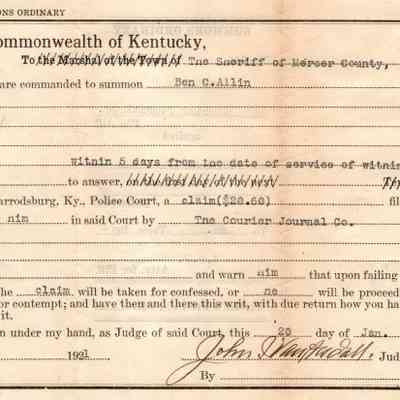 ONS ORDINARY
ommonwealth of Kentucky,
To the Marshal of the Town of The Sheriff of Mercer County,
are commanded to summon Ben C. Allin
within 5 days from the date of service of witin
to answer, on the first day of the next
arrodsburg, Ky., Police Court, a claim($20.60) fil
him in said Court by The Courier Journal Co.
and warn him that upon failing
he claim will be taken for confessed, or he will be proceed
or contempt; and have then and there this writ, with due return how you ha
it.
n under my hand, as Judge of said Court, this 20 day of Jan.
1921 John I. VanArsdall. Jud
By